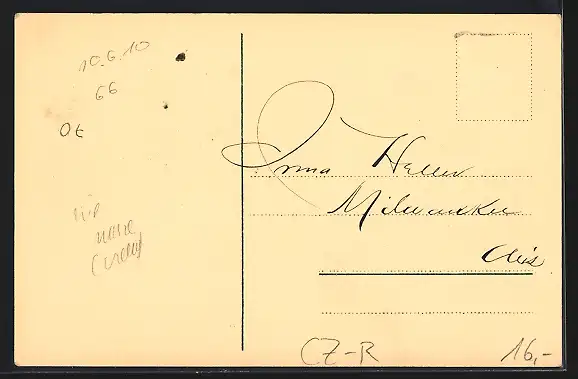 10.6.10
66
Irma Heller
Milwaukee
Wis
CZ-R
16,-